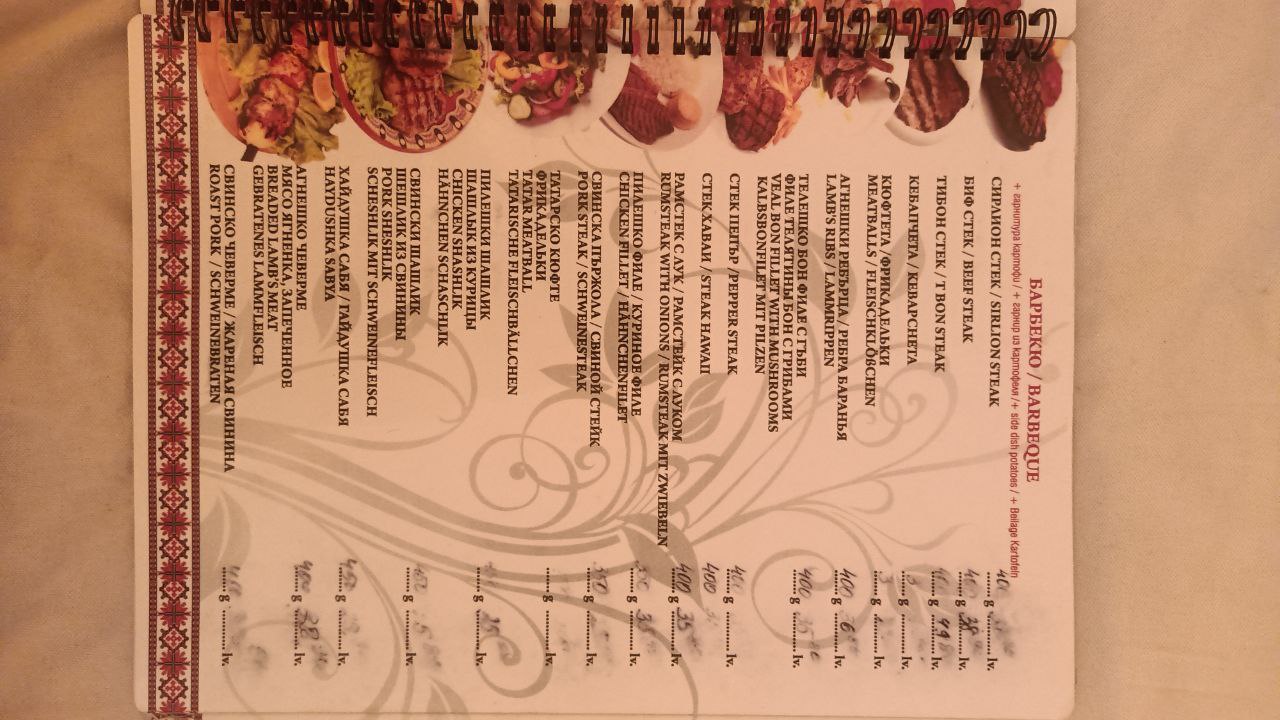 БАРБЕКЮ / BARBEQUE
+ гарнитура картофи / + гарнир из картофеля /+ side dish potatoes / + Beilage Kartofeln
СИРЛИОН СТЕК / SIRLION STEAK 400 g lv.
БИФ СТЕК / BEEF STEAK 400 g 38 lv.
ТИБОН СТЕК / T BON STEAK g 49 lv.
КЕБАПЧЕТА / KEBAPCHETA 3 g lv.
КЮФТЕТА /ФРИКАДЕЛЬКИ
MEATBALLS / FLEISCHKLÖßCHEN 3 g lv.
АГНЕШКИ РЕБЪРЦА / РЕБРА БАРАНЬЯ
LAMB'S RIBS / LAMMRIPPEN 400 g lv.
ТЕЛЕШКО БОН ФИЛЕ С ГЪБИ
ФИЛЕ ТЕЛЯТИНЫ БОН С ГРИБАМИ 400 g lv.
VEAL BON FILLET WITH MUSHROOMS
KALBSBONFILET MIT PILZEN
СТЕК ПЕПЪР /PEPPER STEAK 400 g lv.
СТЕК ХАВАИ / STEAK HAWAII 400
РАМСТЕК С ЛУК / РАМСТЕЙК С ЛУКОМ 400 g 35 lv.
RUMSTEAK WITH ONIONS / RUMSTEAK MIT ZWIEBELN
ПИЛЕШКО ФИЛЕ / КУРИНОЕ ФИЛЕ
CHICKEN FILLET / HÄHNCHENFILET g lv.
СВИНСКА ПЪРЖОЛА / СВИНОЙ СТЕЙК
PORK STEAK / SCHWEINESTEAK 350 g lv.
ТАТАРСКО КЮФТЕ g lv.
ФРИКАДЕЛЬКИ
TATAR MEATBALL
TATARISCHE FLEISCHBÄLLCHEN
ПИЛЕШКИ ШАШЛИК g lv.
ШАШЛЫК ИЗ КУРИЦЫ
CHICKEN SHASHLIK
HÄHNCHEN SCHASCHLIK
СВИНСКИ ШАШЛИК g lv.
ШЕШЛИК ИЗ СВИНИНЫ
PORK SHESHLIK
SCHESHLIK MIT SCHWEINEFLEISCH
ХАЙДУШКА САБЯ / ГАЙДУШКА САБЯ 450 g lv.
HAYDUSHKA SABYA
АГНЕШКО ЧЕВЕРМЕ 400 g 38 lv.
МЯСО ЯГНЕНКА, ЗАПЕЧЕННОЕ
BREADED LAMB'S MEAT
GEBRATENES LAMMFLEISCH
СВИНСКО ЧЕВЕРМЕ / ЖАРЕНАЯ СВИНИНА g lv.
ROAST PORK / SCHWEINEBRATEN